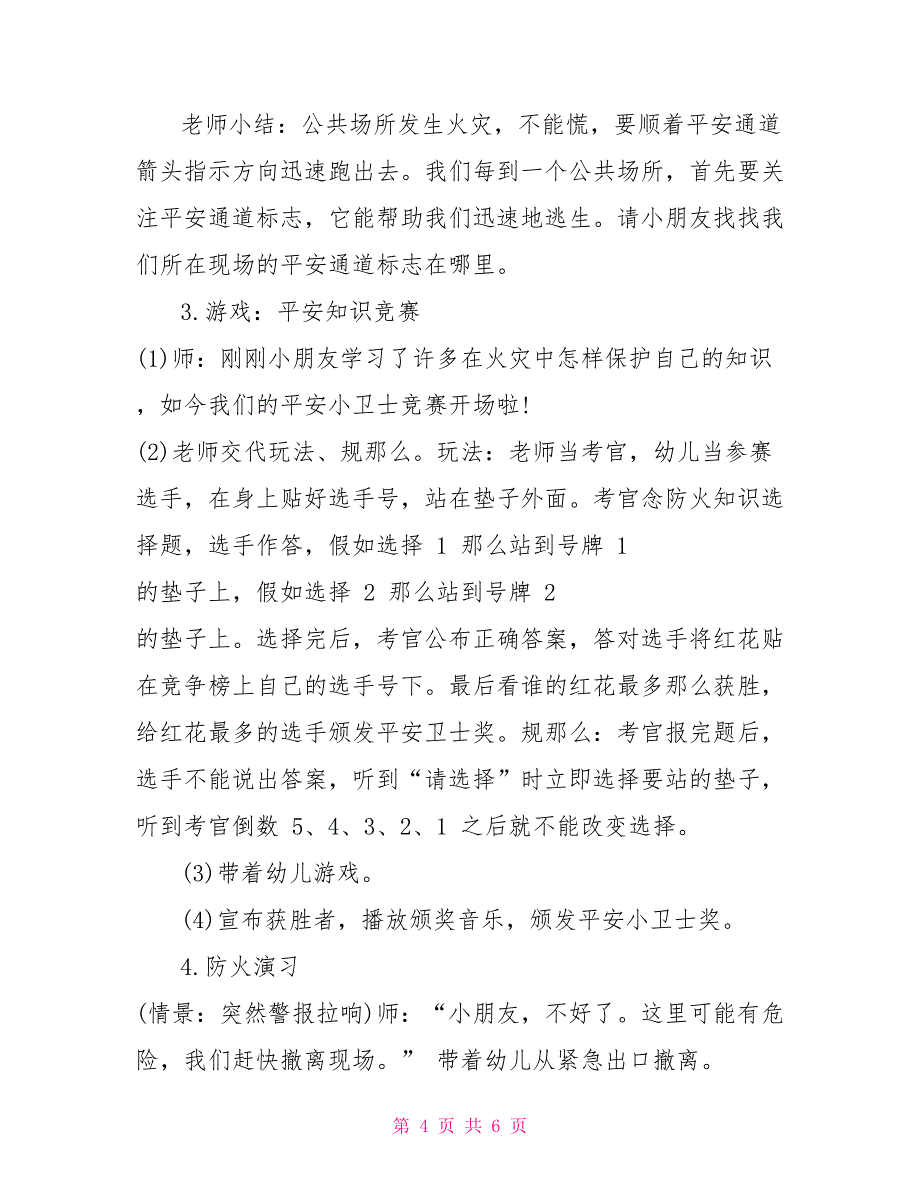 老师小结：公共场所发生火灾，不能慌，要顺着平安通道
箭头指示方向迅速跑出去。我们每到一个公共场所，首先要关
注平安通道标志，它能帮助我们迅速地逃生。请小朋友找找我
们所在现场的平安通道标志在哪里。
3.游戏：平安知识竞赛
(1)师：刚刚小朋友学习了许多在火灾中怎样保护自己的知识
，如今我们的平安小卫士竞赛开场啦!
(2)老师交代玩法、规那么。玩法：老师当考官，幼儿当参赛
选手，在身上贴好选手号，站在垫子外面。考官念防火知识选
择题，选手作答，假如选择 1 那么站到号牌 1
的垫子上，假如选择 2 那么站到号牌 2
的垫子上。选择完后，考官公布正确答案，答对选手将红花贴
在竞争榜上自己的选手号下。最后看谁的红花最多那么获胜，
给红花最多的选手颁发平安卫士奖。规那么：考官报完题后，
选手不能说出答案，听到“请选择”时立即选择要站的垫子，
听到考官倒数 5、4、3、2、1 之后就不能改变选择。
(3)带着幼儿游戏。
(4)宣布获胜者，播放颁奖音乐，颁发平安小卫士奖。
4.防火演习
(情景：突然警报拉响)师：“小朋友，不好了。这里可能有危
险，我们赶快撤离现场。” 带着幼儿从紧急出口撤离。
第 4 页 共 6 页